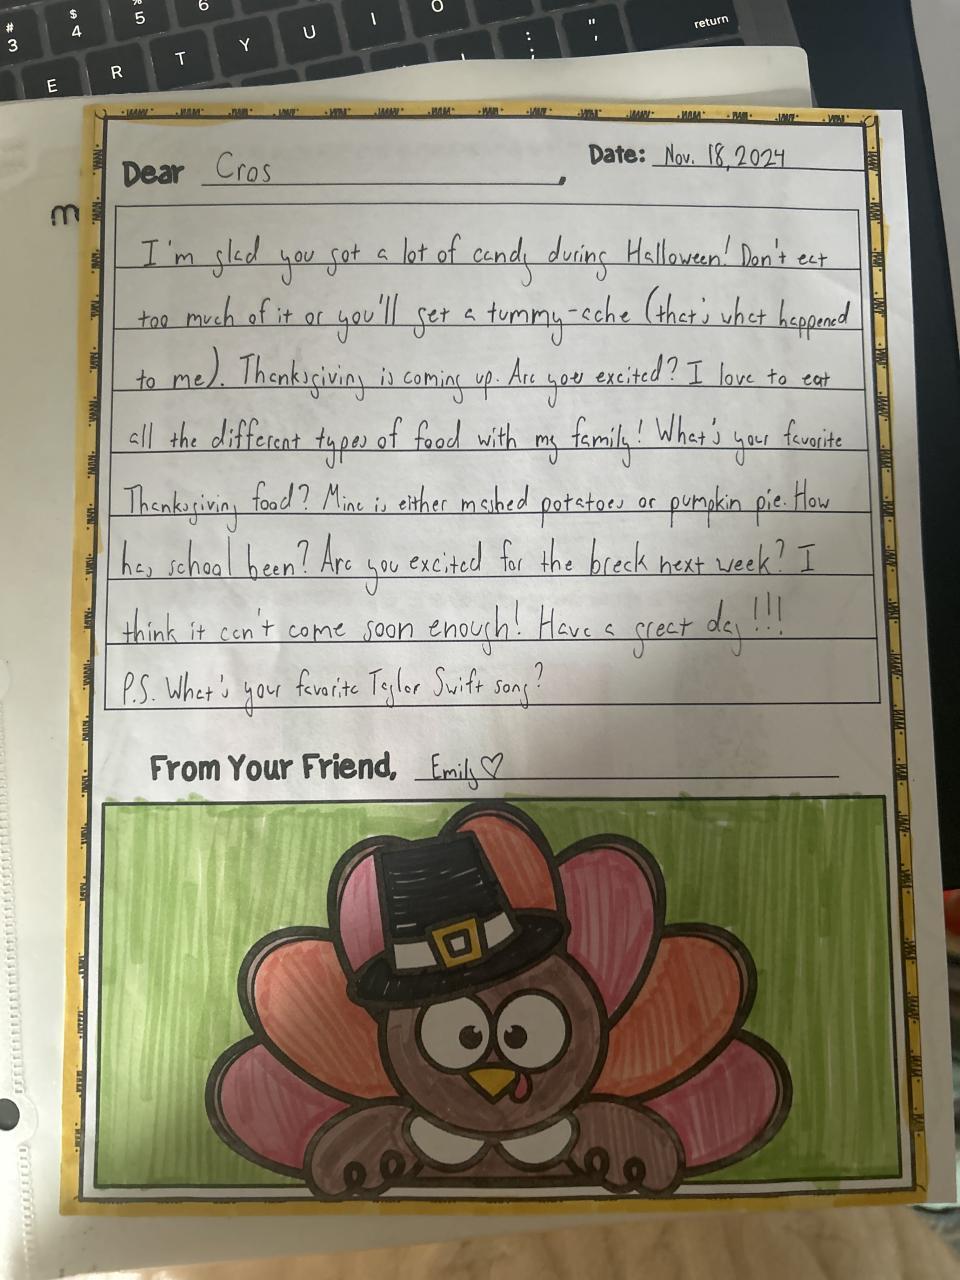 # 3
$ 4
% 5
6
E R T Y U I O
: ;
" '
return
m
Dear Cros,
Date: Nov. 18, 2024
I'm glad you got a lot of candy during Halloween! Don't eat
too much of it or you'll get a tummy-ache (that's what happened
to me). Thanksgiving is coming up. Are you excited? I love to eat
all the different types of food with my family! What's your favorite
Thanksgiving food? Mine is either mashed potatoes or pumpkin pie. How
has school been? Are you excited for the break next week? I
think it can't come soon enough! Have a great day!!!
P.S. What's your favorite Taylor Swift song?
From Your Friend, Emily♡